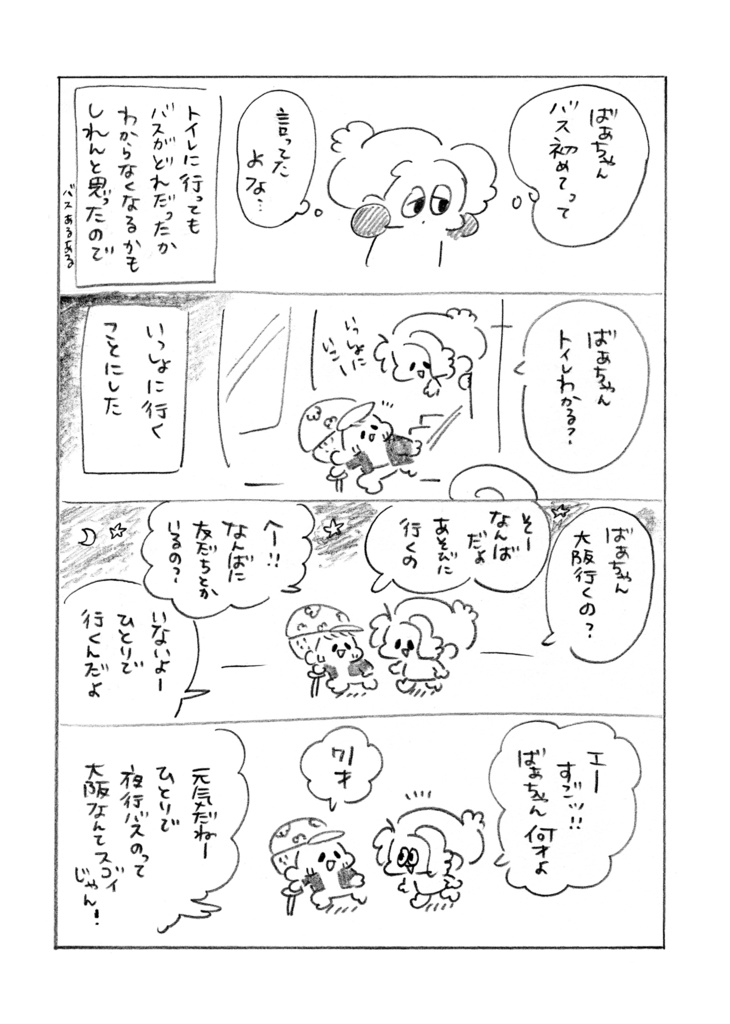 ばぁちゃん
バス初めてって
言ってた
よな…
トイレに行っても
バスがどれだったか
わからなくなるかも
しれんと思ったので
バスあるある
ばぁちゃん
トイレわかる?
いっしょに
いこー
いっしょに行く
ことにした
ばぁちゃん
大阪行くの?
そー
なんば
だよ
あそびに
行くの
へー!!
なんばに
友だちとか
いるの?
いないよー
ひとりで
行くんだよ
エー
すごッ!!
ばぁちゃん何才よ
71才
元気だねー
ひとりで
夜行バスのって
大阪なんてスゴイ
じゃん!